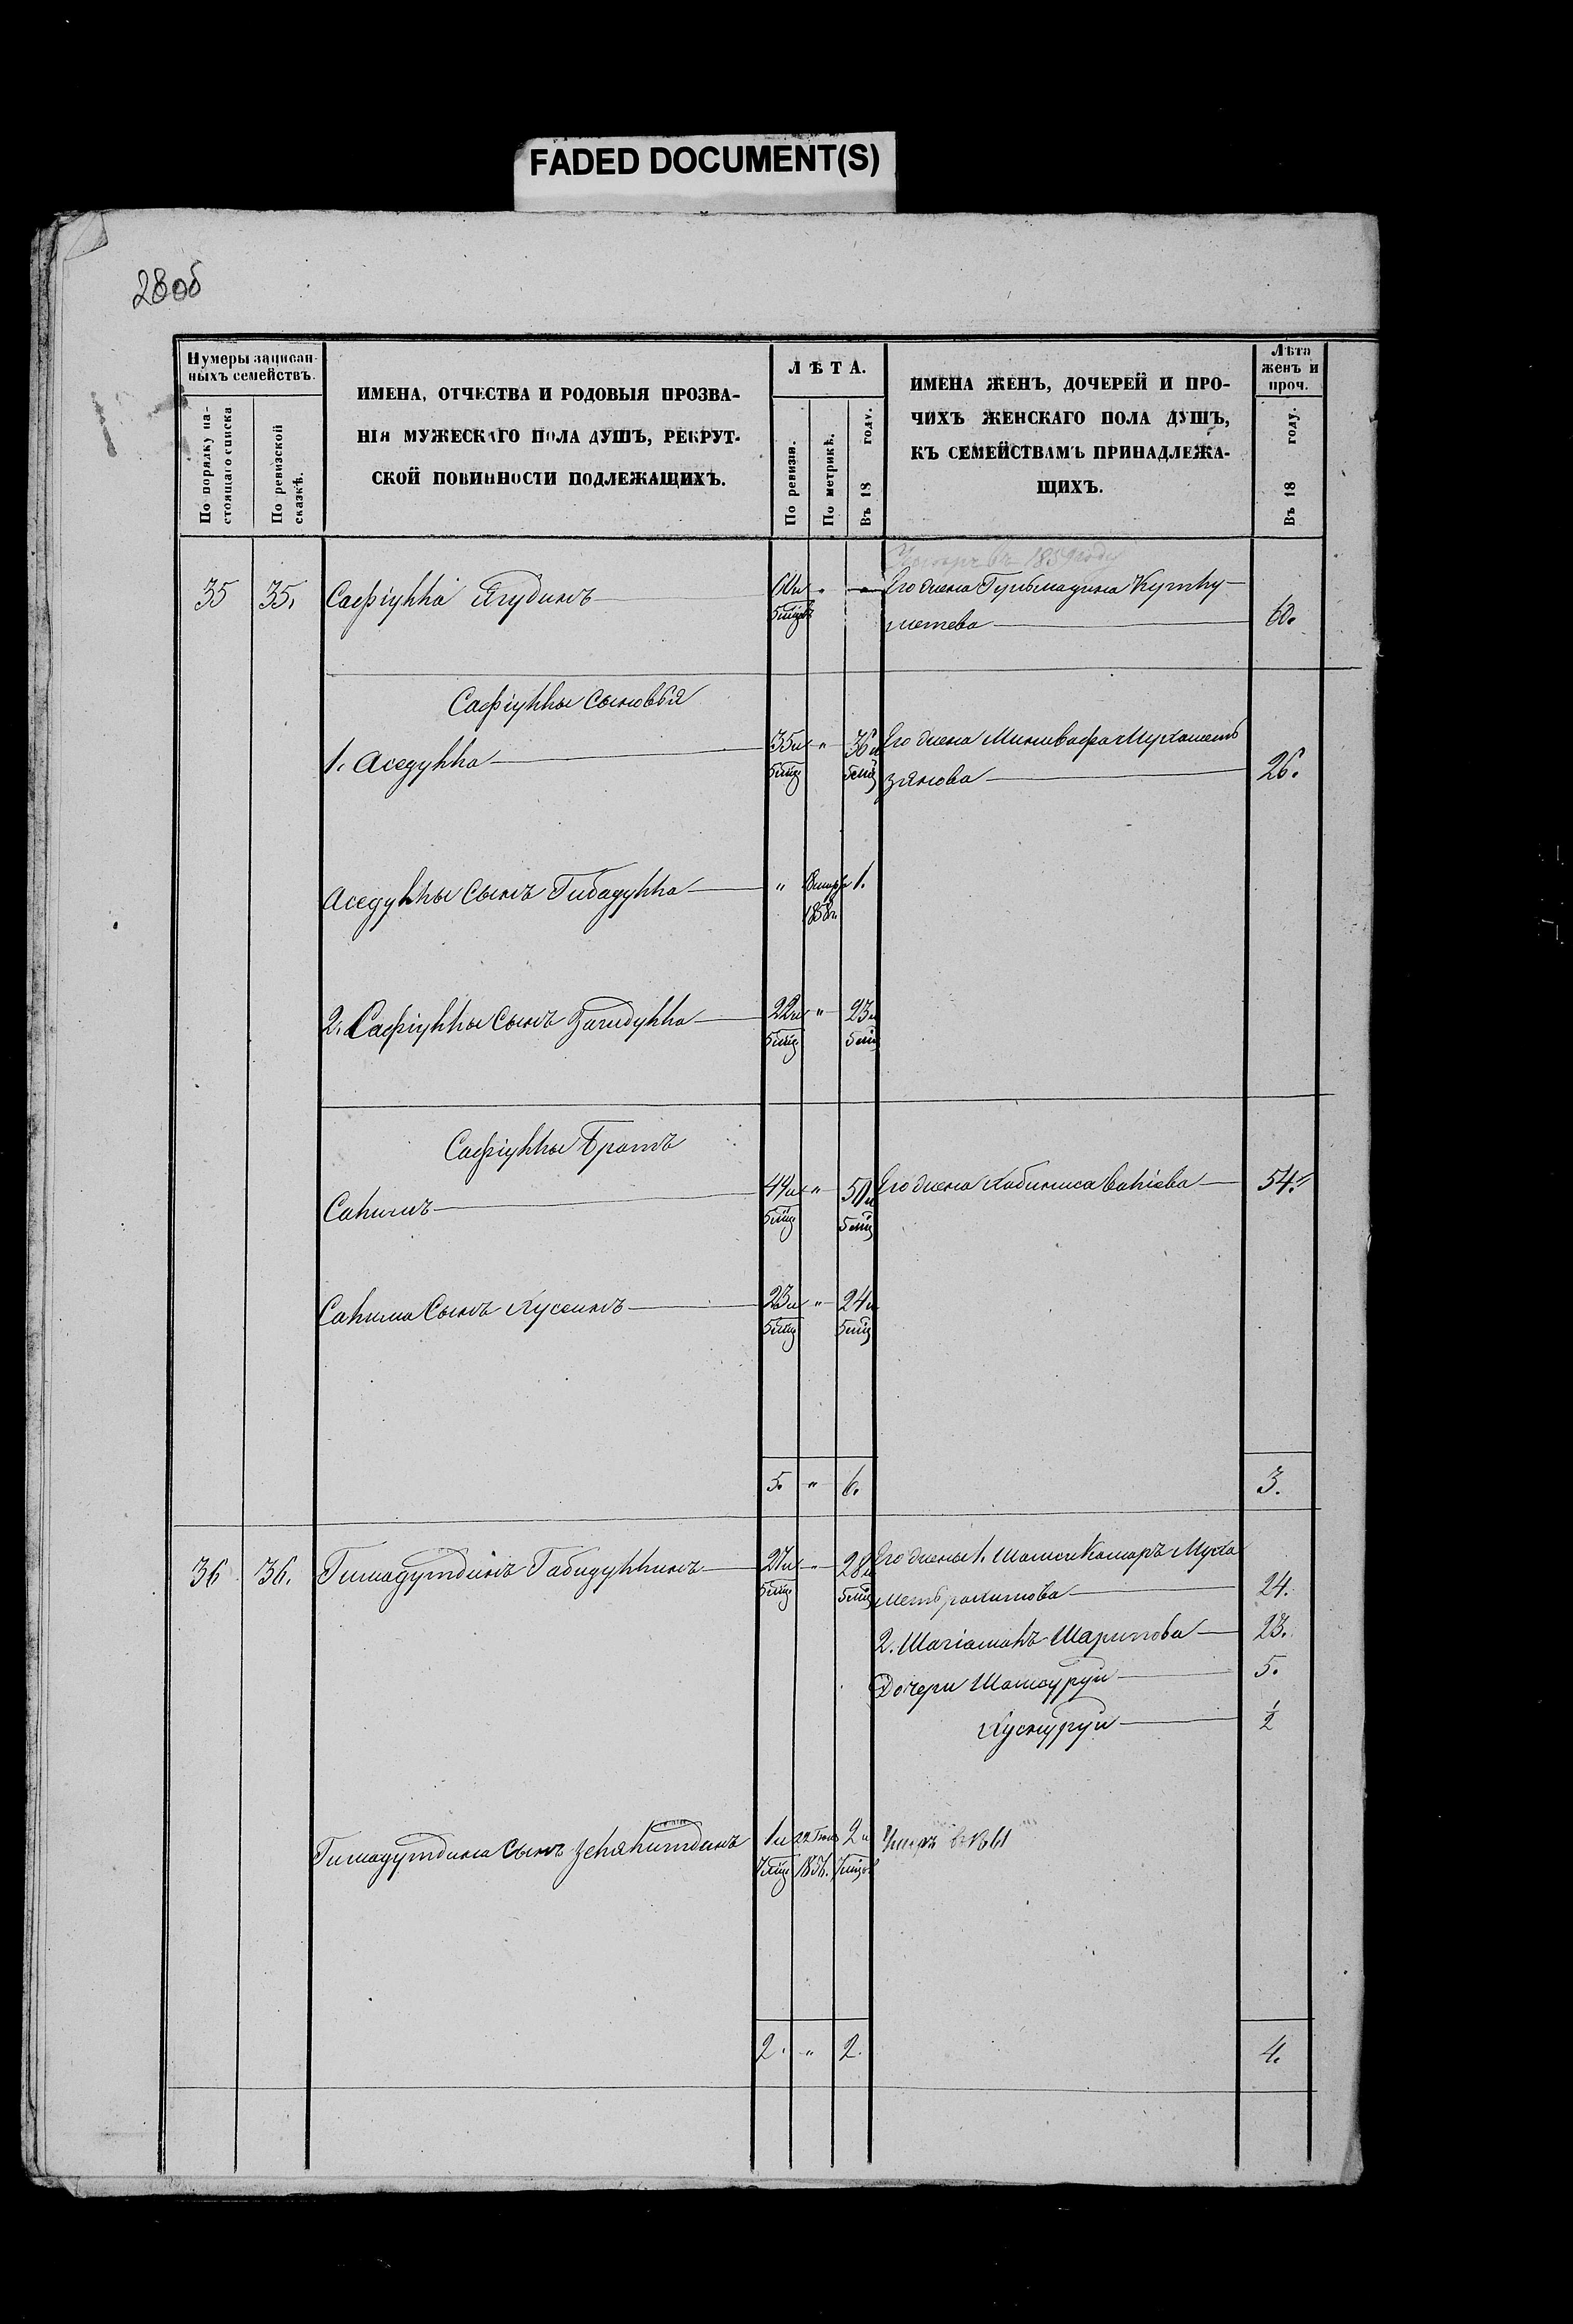 FADED DOCUMENT(S)
28об
Нумеры записан-
ныхъ семействъ.
По порядку на-
стоящаго списка
По ревизской
сказкѣ.
ИМЕНА, ОТЧЕСТВА И РОДОВЫЯ ПРОЗВА-
НІЯ МУЖЕСКАГО ПОЛА ДУШЪ, РЕКРУТ-
СКОЙ ПОВИННОСТИ ПОДЛЕЖАЩИХЪ.
ЛѢТА.
По ревизіи.
По метрикѣ.
Въ 18 году.
ИМЕНА ЖЕНЪ, ДОЧЕРЕЙ И ПРО-
ЧИХЪ ЖЕНСКАГО ПОЛА ДУШЪ,
КЪ СЕМЕЙСТВАМЪ ПРИНАДЛЕЖА-
ЩИХЪ.
Лѣта
женъ и
проч.
Въ 18 году.
въ 1859 году
35 35. Сафіулла Ягудинъ 60 и " — Его жена Гульмадина Кутлу-
5 мцовъ метева 60.
Сафіуллы сыновья
1. Асадулла 35 и " 36 и Его жена Минивафа Мухаметъ
5 мцъ 5 мцъ зянова 26.
Асадуллы сынъ Гибадулла " 1.
1858 г.
2. Сафіуллы сынъ Загидулла 22 и " 23 и
5 мцъ 5 мцъ
Сафіуллы братъ
Салимъ 49 и " 50 и Его жена Хабиниса Валіева 54.
5 мцъ 5 мцъ
Салима сынъ Хусеинъ 23 и " 24 и
5 мцъ 5 мцъ
5. " 6. 3.
36 36. Гимадутдинъ Габидуллинъ 27 и " 28 и Его жены 1. Шамсикамаръ Муха
5 мцъ 5 мцъ метьрахимова 24.
2. Шагіамалъ Шарипова 23.
Дочери Шамсуруй 5.
Хуснуруй ½
Гимадутдина сынъ Зеляlитдинъ 1 и 22 2 и Умеръ
7 мцъ 1856. 7 мцов
2. " 2. 4.